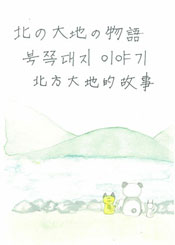 北の大地の物語
북쪽대지 이야기
北方大地的故事